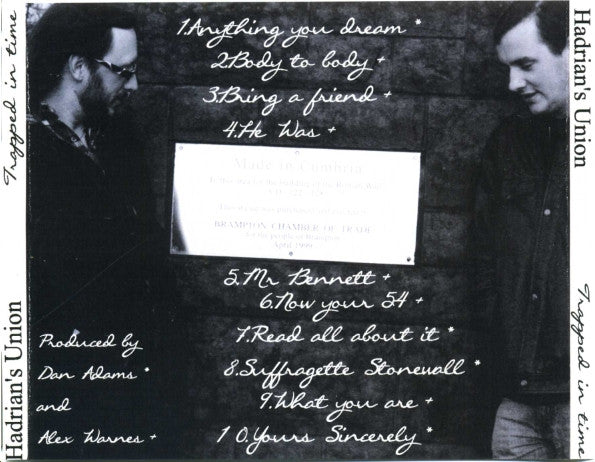 Trapped in time
Hadrian's Union
1.Anything you dream *
2.Body to body +
3.Bring a friend +
4.He Was +
Made in Cumbria
BRAMPTON CHAMBER OF TRADE
April 1999
5.Mr Bennett +
6.Now your 54 +
7.Read all about it *
8.Suffragette Stonewall *
9.What you are +
10.Yours Sincerely *
Produced by
Dan Adams *
and
Alex Warnes +
Hadrian's Union
Trapped in time